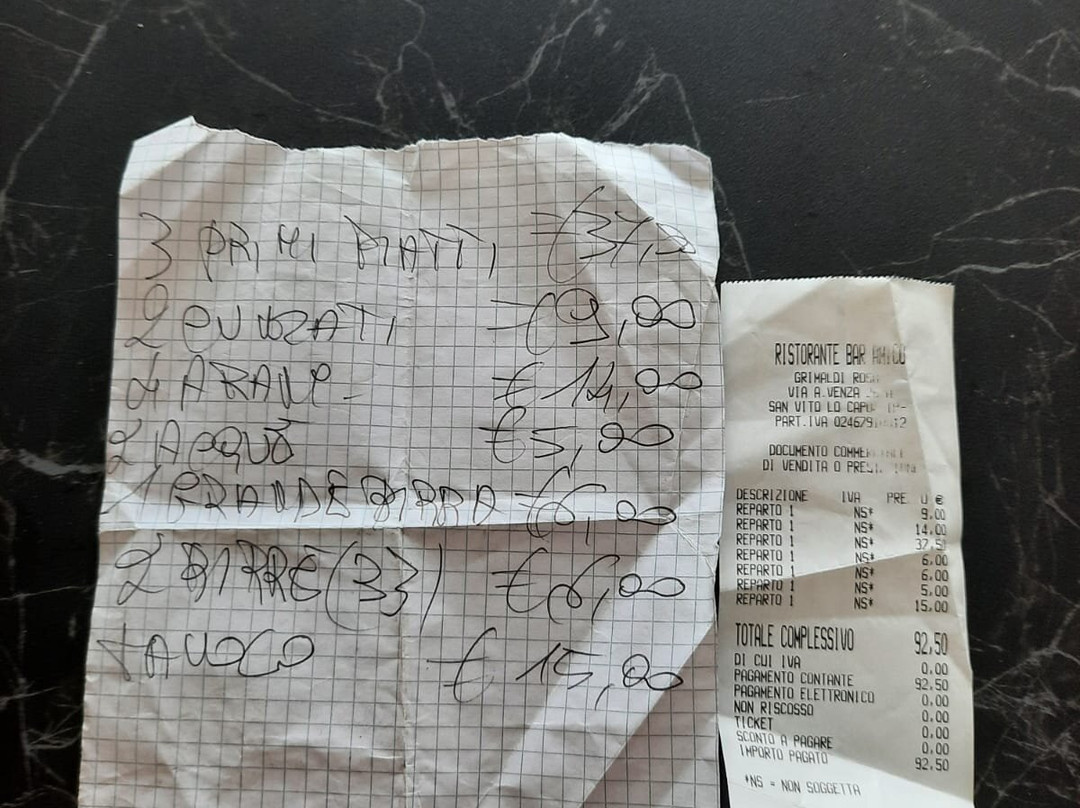 3 PRIMI PIATTI €37,
2 € 9,00
4 ARANC. € 14,00
2 ACQUÈ € 5,00
1 GRANDE BIRRA € 6,00
2 BIRRE (33) € 6,00
TAVOLO € 15,00
RISTORANTE BAR AMICO
GRIMALDI ROSA
VIA A.VENZA
SAN VITO LO CAPO
PART.IVA
DOCUMENTO COMMERCIALE
DI VENDITA O PREST.
DESCRIZIONE IVA €
REPARTO 1 NS* 9.00
REPARTO 1 NS* 14.00
REPARTO 1 NS* 37.50
REPARTO 1 NS* 6.00
REPARTO 1 NS* 6.00
REPARTO 1 NS* 5.00
REPARTO 1 NS* 15.00
TOTALE COMPLESSIVO 92.50
DI CUI IVA 0.00
PAGAMENTO CONTANTE 92.50
PAGAMENTO ELETTRONICO 0.00
NON RISCOSSO 0.00
TICKET 0.00
SCONTO A PAGARE 0.00
IMPORTO PAGATO 92.50
*NS = NON SOGGETTA